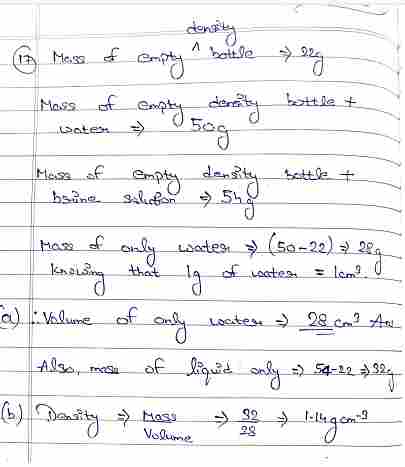 density
(17) Mass of empty ^ bottle ⇒ 22g
Mass of empty density bottle +
water ⇒ 50g
Mass of empty density bottle +
brine solution ⇒ 54g
Mass of only water ⇒ (50-22) ⇒ 28g
Knowing that 1g of water = 1cm³.
(a) ∴ Volume of only water ⇒ 28 cm³ Ans
Also, mass of liquid only ⇒ 54-22 ⇒ 32g
(b) Density ⇒ Mass / Volume ⇒ 32 / 28 ⇒ 1.14g cm⁻³